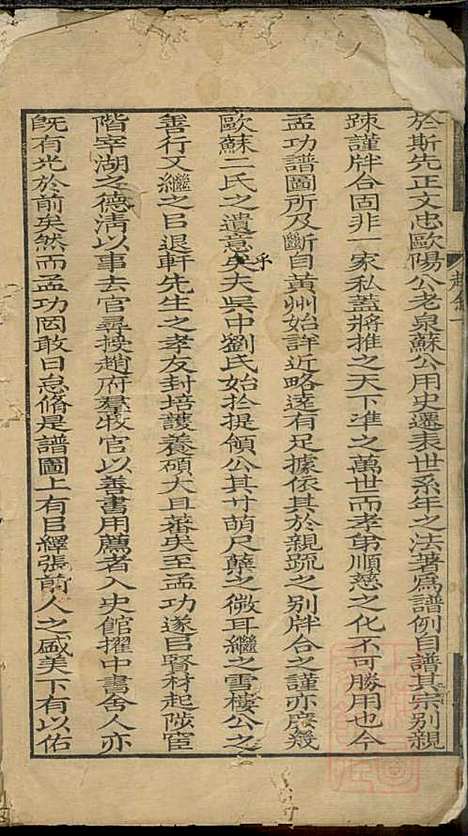 於斯先正文忠歐陽公老泉蘇公用史遷表世系年之法著爲譜例自譜其宗別親
疎謹牉合固非一家私蓋將推之天下準之萬世而孝弟順慈之化不可勝用也今
孟功譜圖所及斷自黃州始詳近略遠有足據依其於親疏之別牉合之謹亦庶幾
歐蘇二氏之遺意乎夫吳中劉氏始於提領公其廿萌尺蘖之微耳繼之雪樓公之
善行又繼之㠯退軒先生之孝友封培護養碩大且蕃矣至孟功遂㠯賢材起陞宦
階宰湖之德清以事去官尋換趙府羣牧官以善書用薦者入史館擢中書舍人亦
旣有光於前矣然而孟功罔敢日怠脩是譜圖上有㠯繹張前人之盛美下有以佑